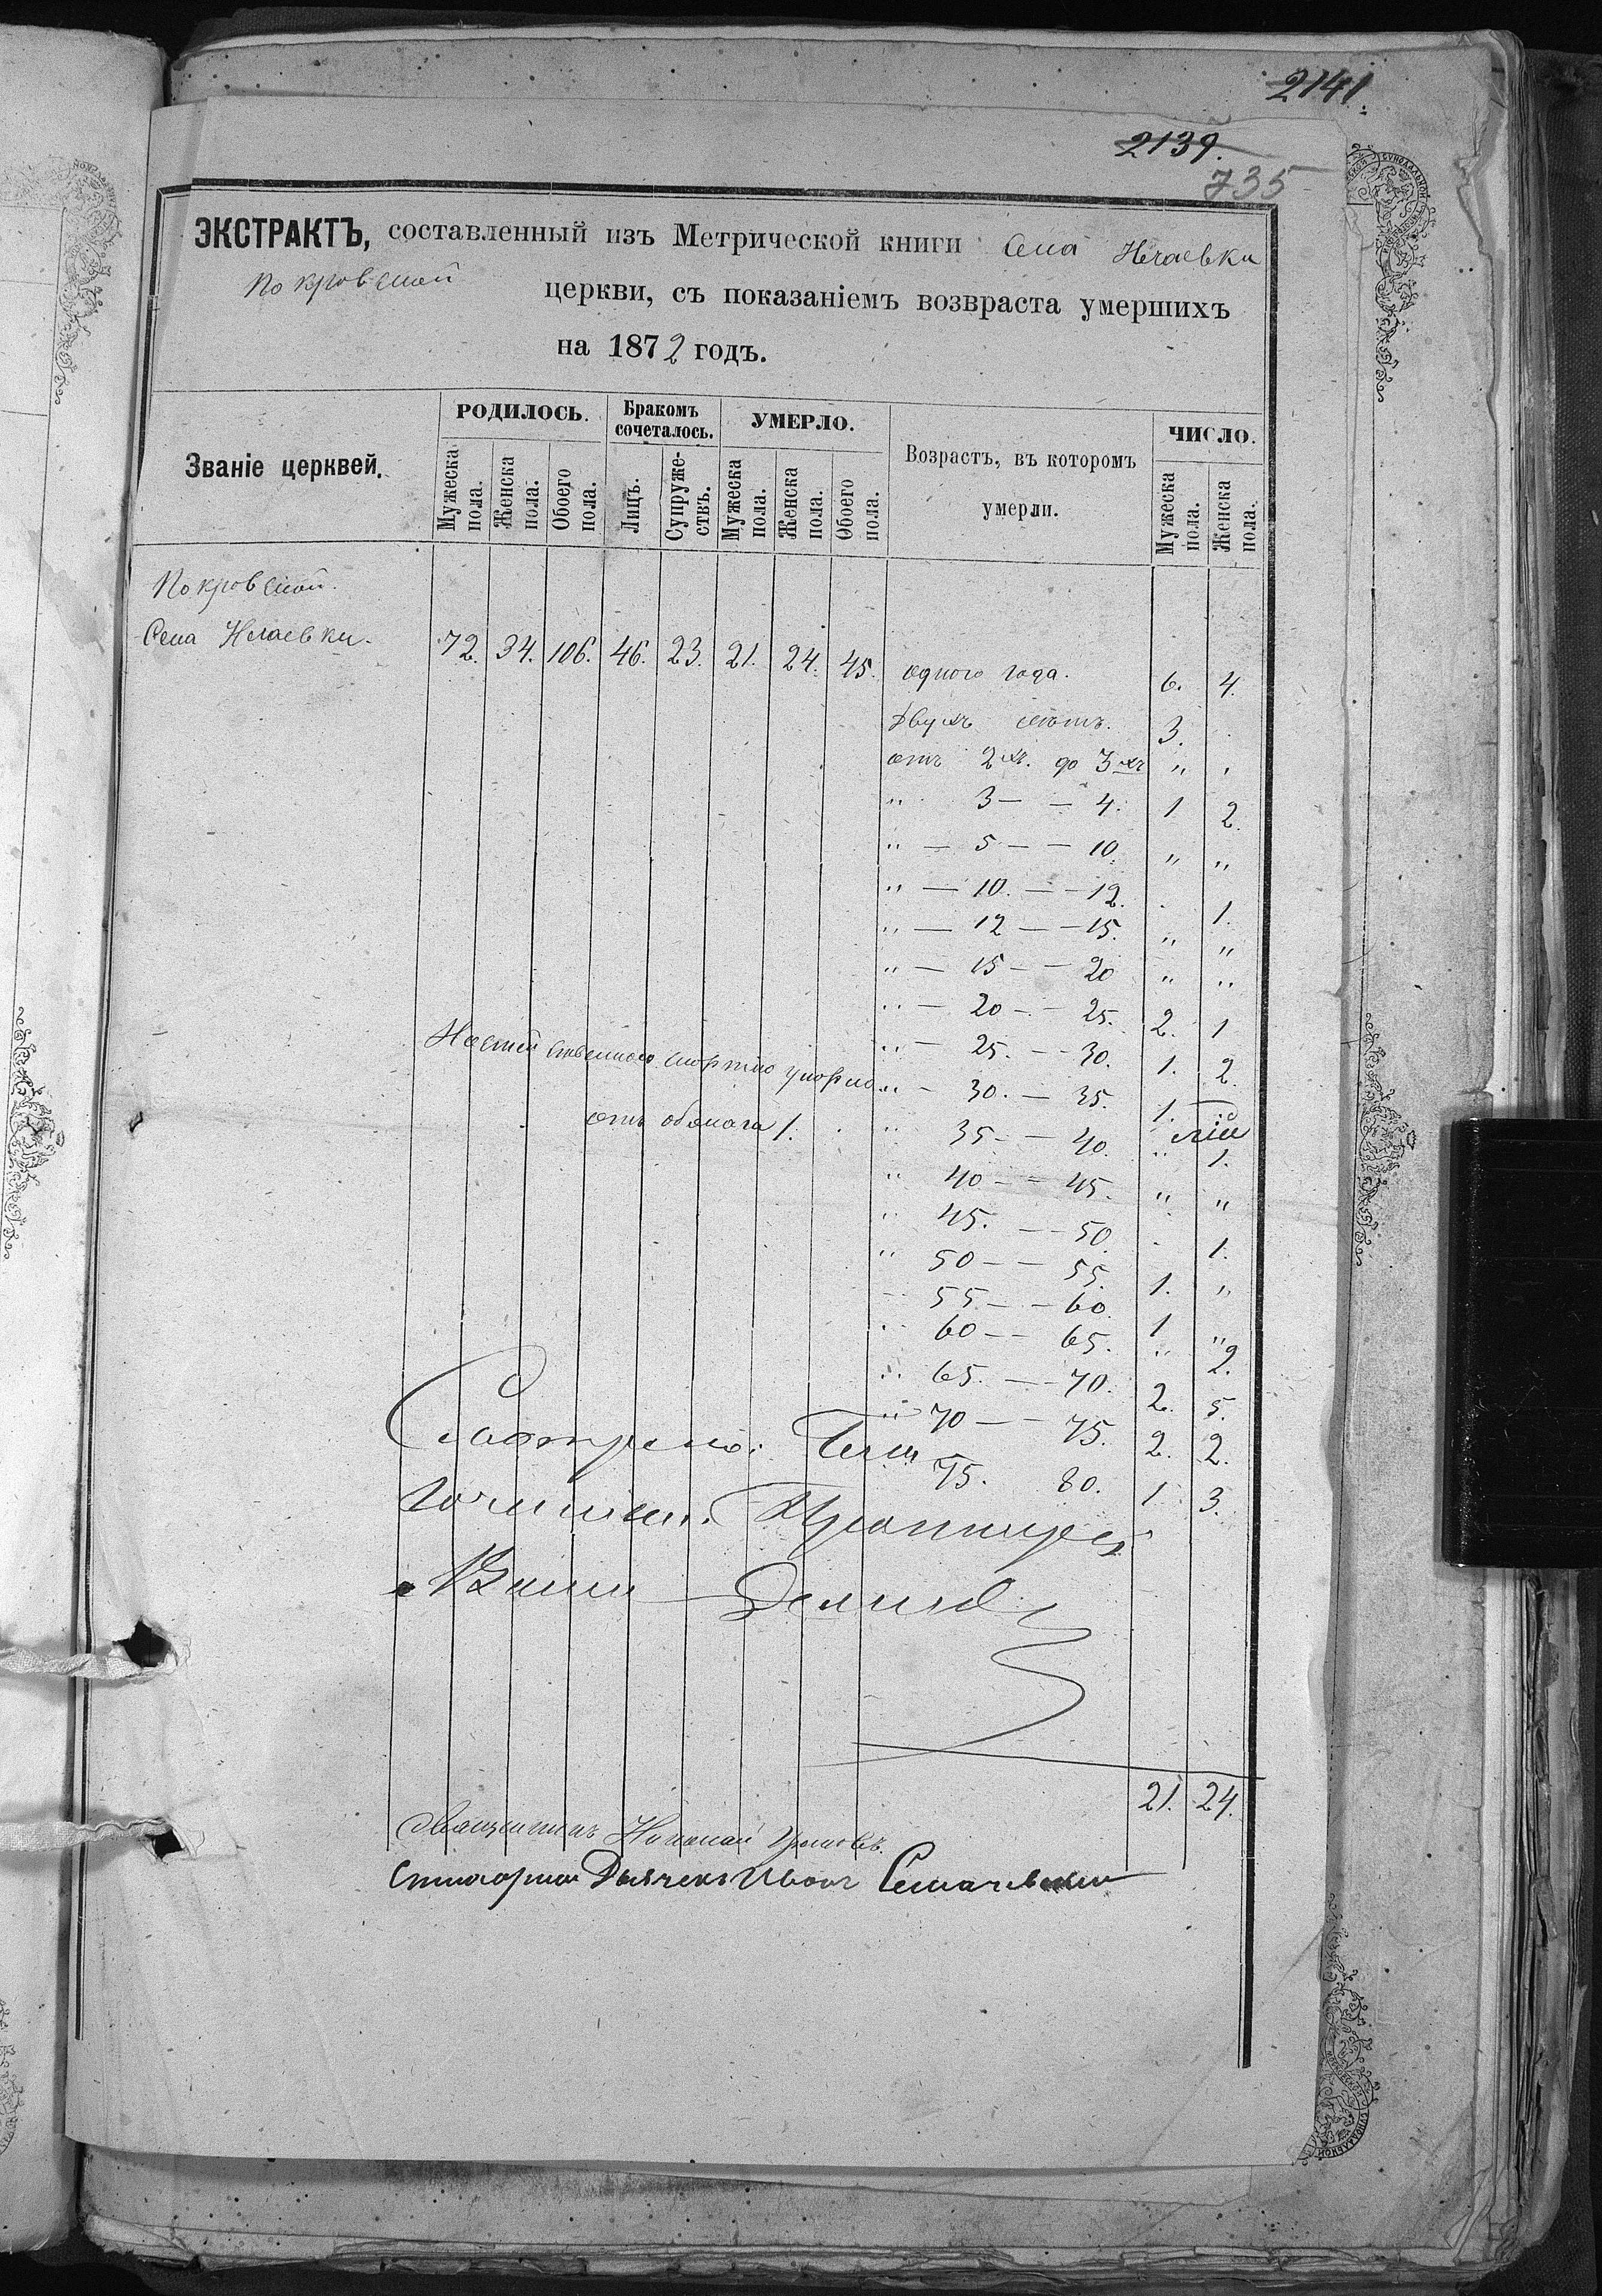 2141.
2139.
735
ЭКСТРАКТЪ, составленный изъ Метрической книги Села Нечаевки
Покровской церкви, съ показаніемъ возвраста умершихъ
на 1872 годъ.
Званіе церквей.
РОДИЛОСЬ.
Мужеска пола.
Женска пола.
Обоего пола.
Бракомъ сочеталось.
Лицъ.
Супружествъ.
УМЕРЛО.
Мужеска пола.
Женска пола.
Обоего пола.
Возрастъ, въ которомъ умерли.
ЧИСЛО.
Мужеска пола.
Женска пола.
Покровской.
Села Нечаевки. 72. 34. 106. 46. 23. 21. 24. 45. одного года. 6. 4.
Двухъ лѣтъ. 3.
отъ 2хъ. до 3хъ " "
" 3 — — 4. 1 2.
" — 5 — — 10. " "
" — 10. — — 12. 1.
" — 12 — — 15. " "
" — 15 — — 20 " "
" — 20 — — 25. 2. 1
" — 25. — 30. 1. 2.
" — 30. — 35. 1.
" 35 — — 40. " 1.
" 40 — — 45. " "
" 45. — — 50. 1.
" 50 — — 55. 1. "
55. — — 60. 1 "
" 60 — — 65. " 2.
" 65. — — 70. 2. 5.
" 70 — — 75. 2. 2.
75. 80. 1 3.
отъ 1.
21. 24.
Священникъ Николай
Дьячекъ Иванъ